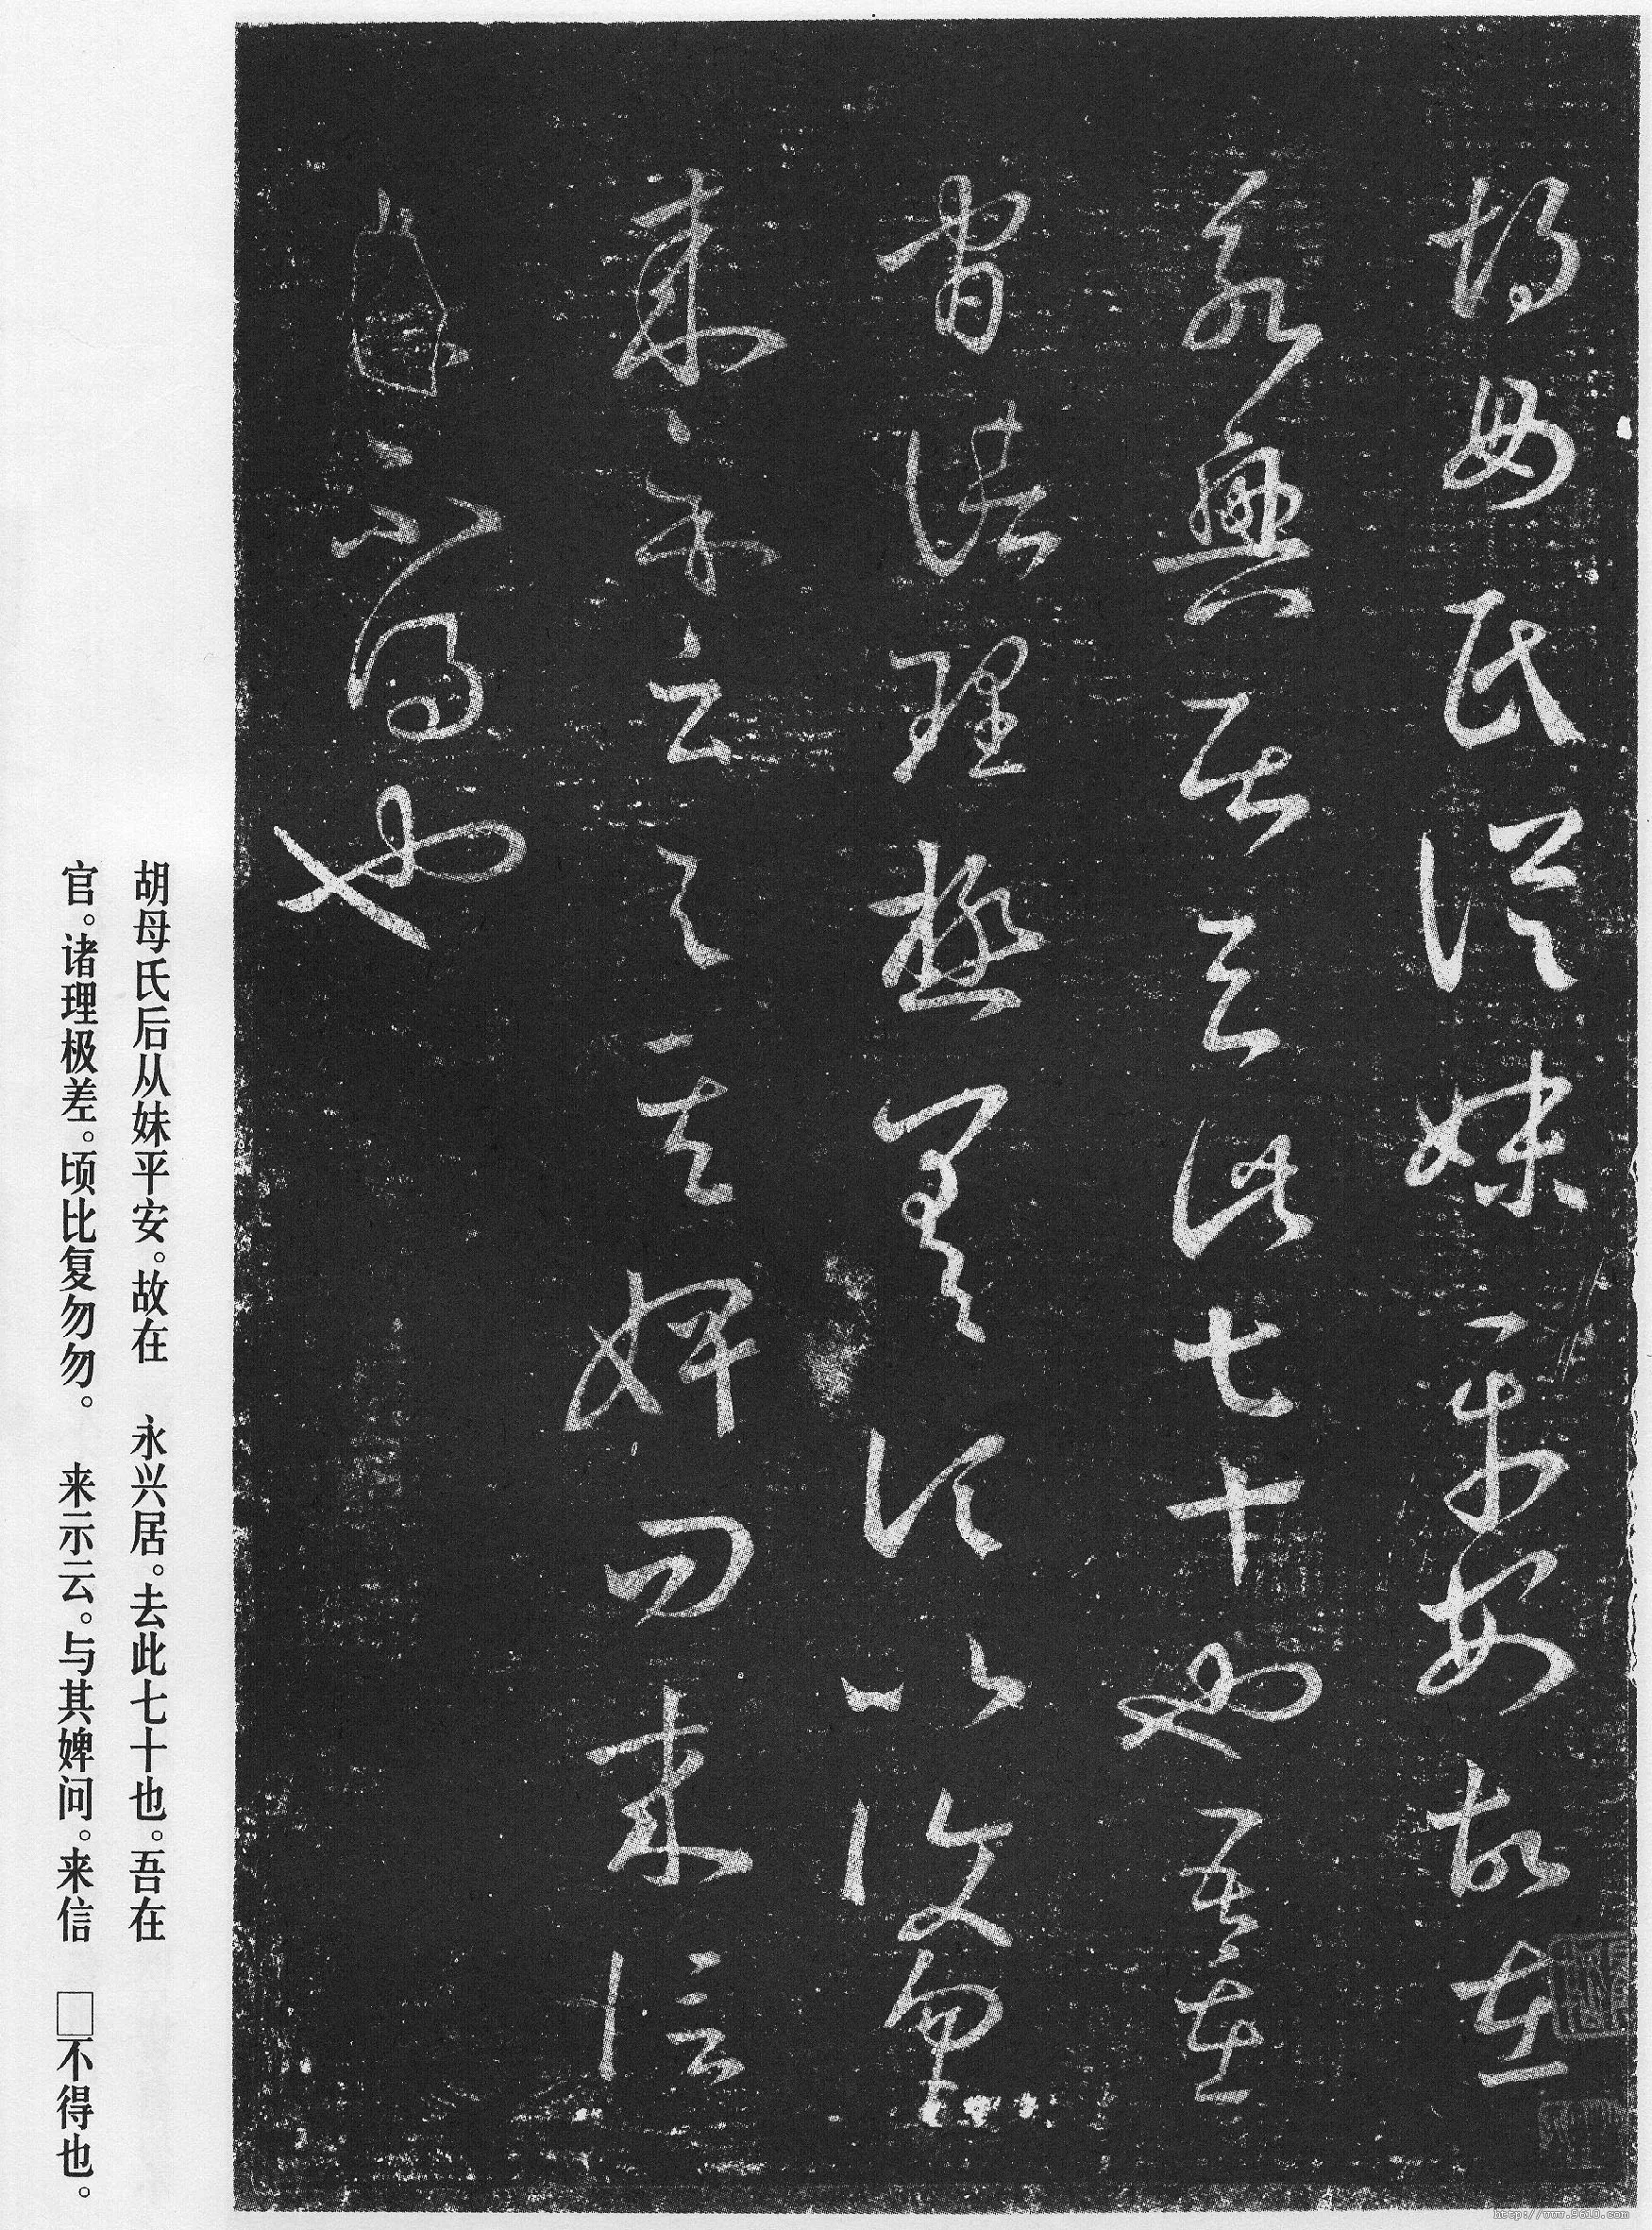 胡母氏從妹平安故在
永興居去此七十也吾在
官諸理極差頃比復勿勿
來示云與其婢問來信
不得也
胡母氏后从妹平安。故在　永兴居。去此七十也。吾在
官。诸理极差。顷比复勿勿。　来示云。与其婢问。来信　□不得也。
http://www.9610.com